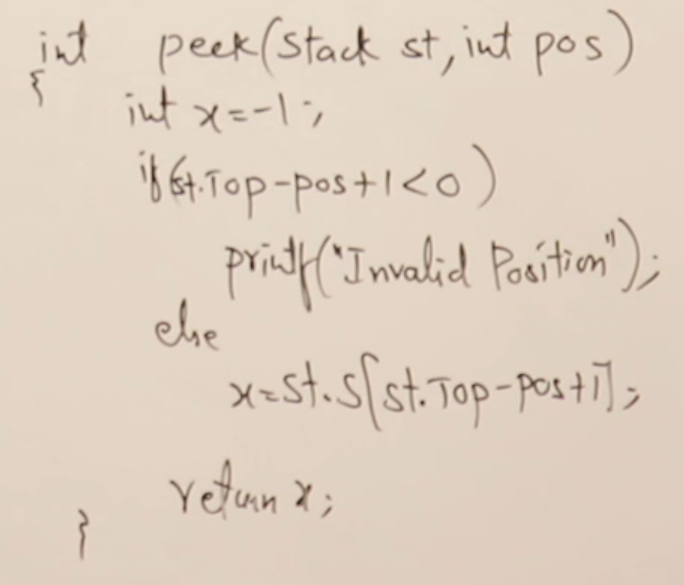 int peek(Stack st, int pos)
{
int x=-1;
if(st.Top-pos+1<0)
printf("Invalid Position");
else
x=st.S[st.Top-pos+1];
return x;
}